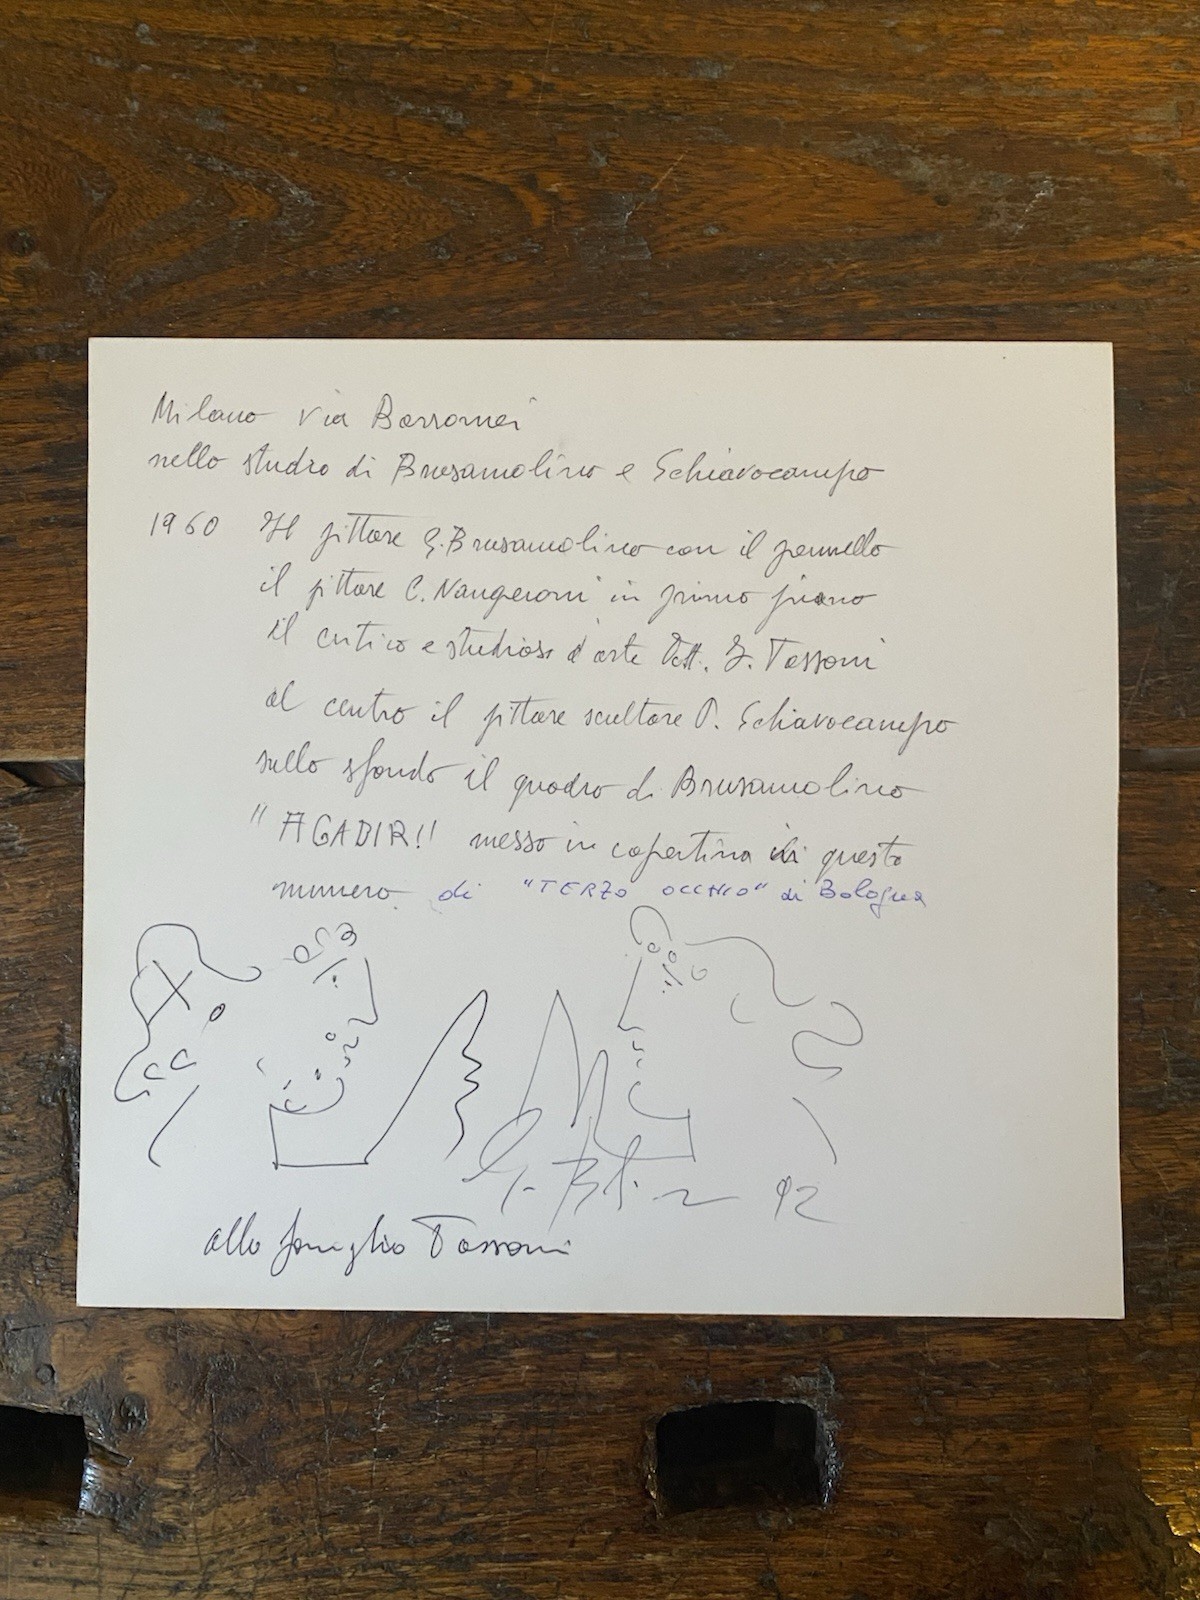 Milano Via Borromei
nello studio di Brusamolino e Schiavocampo
1960 Il pittore G. Brusamolino con il pennello
il pittore C. Nangeroni in primo piano
il critico e studioso d'arte Dott. Tassoni
al centro il pittore scultore P. Schiavocampo
sullo sfondo il quadro di Brusamolino
"AGADIR!! messo in copertina di questo
numero di "TERZO OCCHIO" di Bologna
92
alla famiglia Tassoni